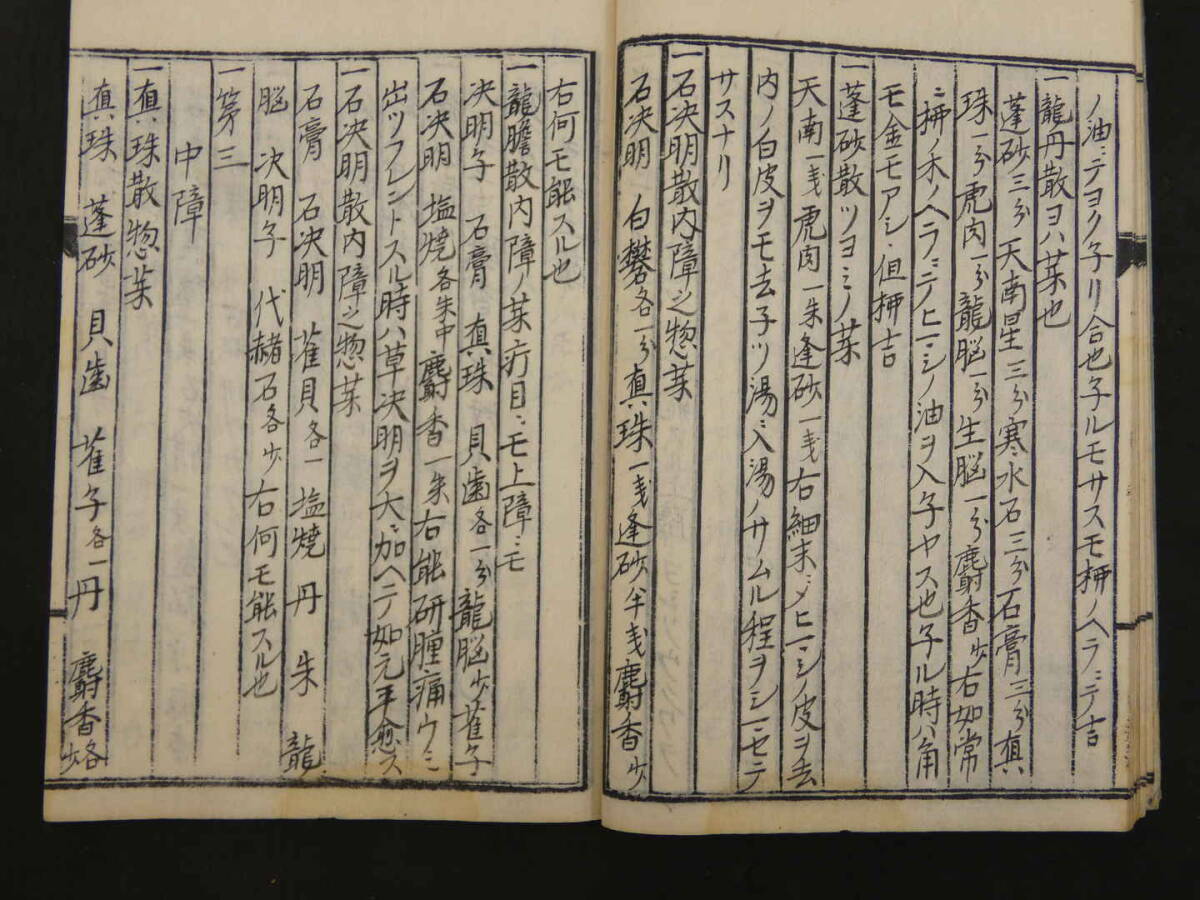 ノ油ニテヨク子リ合也子ルモサスモ柳ノヘラニテ吉
一龍丹散ヨハ薬也
蓬砂三分天南星三分寒水石三分石膏三分真
珠一分虎肉一分龍脳一分生脳一分麝香少右如常
ニ柳ノ木ノヘラニテノヒマシノ油ヲ入子ヤス也子ル時ハ角
モ金モアシ但柳吉
一蓬砂散ツヨミノ薬
天南一戔虎肉一朱逢砂一戔右細末ニメヒマシノ皮ヲ去
内ノ白皮ヲモ去子ツ湯ニ入湯ノサムル程ヲシマセテ
サスナリ
一石决明散内障之惣薬
石决明 白礬各一分真珠一戔逢砂半戔麝香少
右何モ能スル也
一龍膽散内障ノ薬疔目ニモ上障ニモ
决明子 石膏 真珠 貝歯各一分龍脳少雀子
石决明 塩焼各朱中麝香一朱右能研腫痛ウミ
出ツフレントスル時ハ草决明ヲ大ニ加ヘテ如元平愈ス
一石决明散内障之惣薬
石膏 石决明 雀貝各一塩焼 丹 朱 龍
脳 决明子 代赭石各少右何モ能スル也
一第三
中障
一真珠散惣薬
真珠 蓬砂 貝歯 雀子各一丹 麝香各少